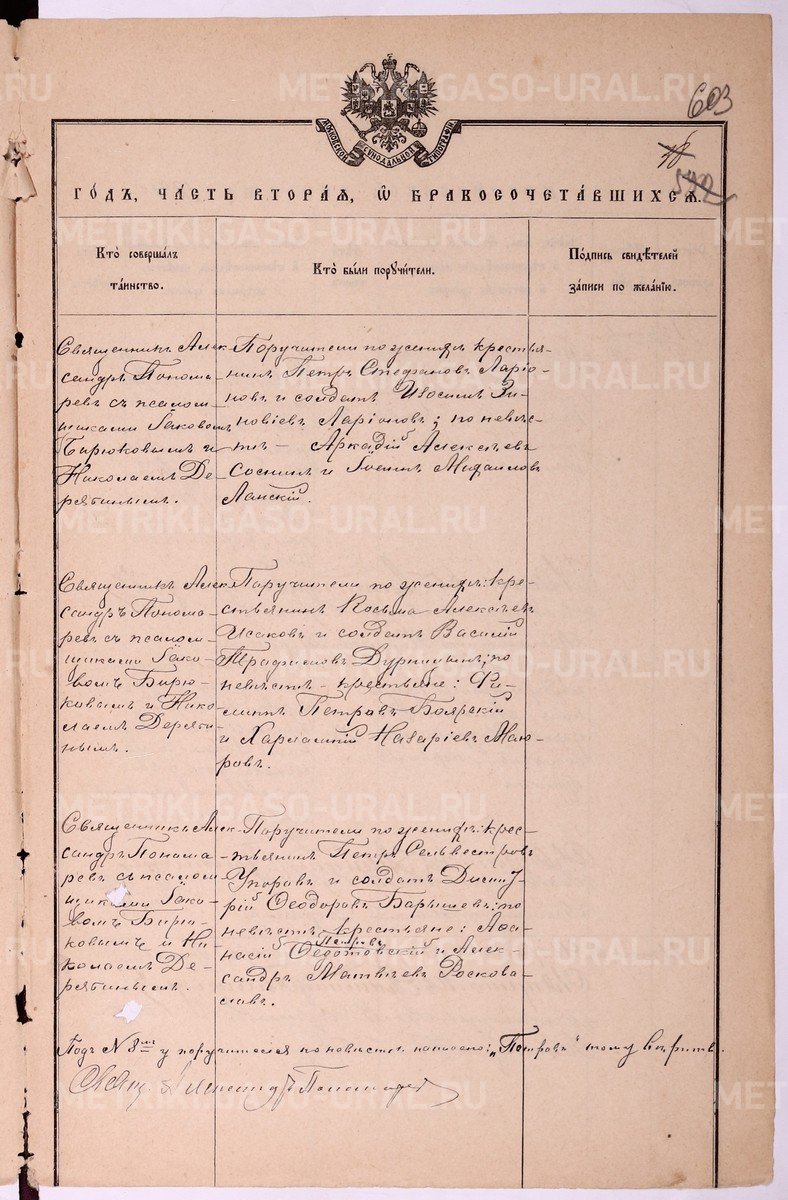 METRIKI.GASO-URAL.RU
603
МОСКОВСКОЙ СѴНОДАЛЬНОЙ ТИПОГРАФІИ
592
ГО́ДЪ, ЧА́СТЬ ВТОРА́Я, Ѡ БРАКОСОЧЕТА́ВШИХСѦ.
Кто̀ соверша́лъ
та́инство.
Кто̀ бы́ли поручи́тели.
По́дпись свидѣ́телей
за́писи по жела́нію.
Священникъ Алек-
сандръ Понома-
ревъ съ псалом-
щиками Іаковомъ
Бирюковымъ и
Николаемъ Де-
рябинымъ.
Поручители по женихѣ крестья-
нинъ Петръ Стефановъ Ларіо-
новъ и солдатъ Іосифъ Зи-
новіевъ Ларіоновъ; по невѣс-
тѣ — Аркадій Алексѣевъ
Соснинъ и Іоаннъ Михаиловъ
Ланскій.
Священникъ Алек-
сандръ Понома-
ревъ съ псалом-
щиками Іако-
вомъ Бирю-
ковымъ и Нико-
лаемъ Деряби-
нымъ.
Поручители по женихѣ: кре-
стьянинъ Косьма Алексѣевъ
Исаковъ и солдатъ Василій
Трофимовъ Дурницынъ; по
невѣстѣ — крестьяне: Фи-
липпъ Петровъ Боярскій
и Харлампій Назаріевъ Маю-
ровъ.
Священникъ Алек-
сандръ Понома-
ревъ съ псалом-
щиками Іако-
вомъ Бирю-
ковымъ и Ни-
колаемъ Де-
рябинымъ.
Поручители по женихѣ: крес-
тьянинъ Петръ Сельвестровъ
Упоровъ и солдатъ Дими-
рій Ѳеодоровъ Барышевъ: по
невѣстѣ крестьяне: Аѳа-
насій Петровъ Ѳедотовскій и Алек-
сандръ Матвѣевъ Роскова-
ловъ.
Подъ N 8мъ у поручителя по невѣстѣ написано: „Петровъ“ тому вѣрить.
Свящ. Александръ Пономаревъ